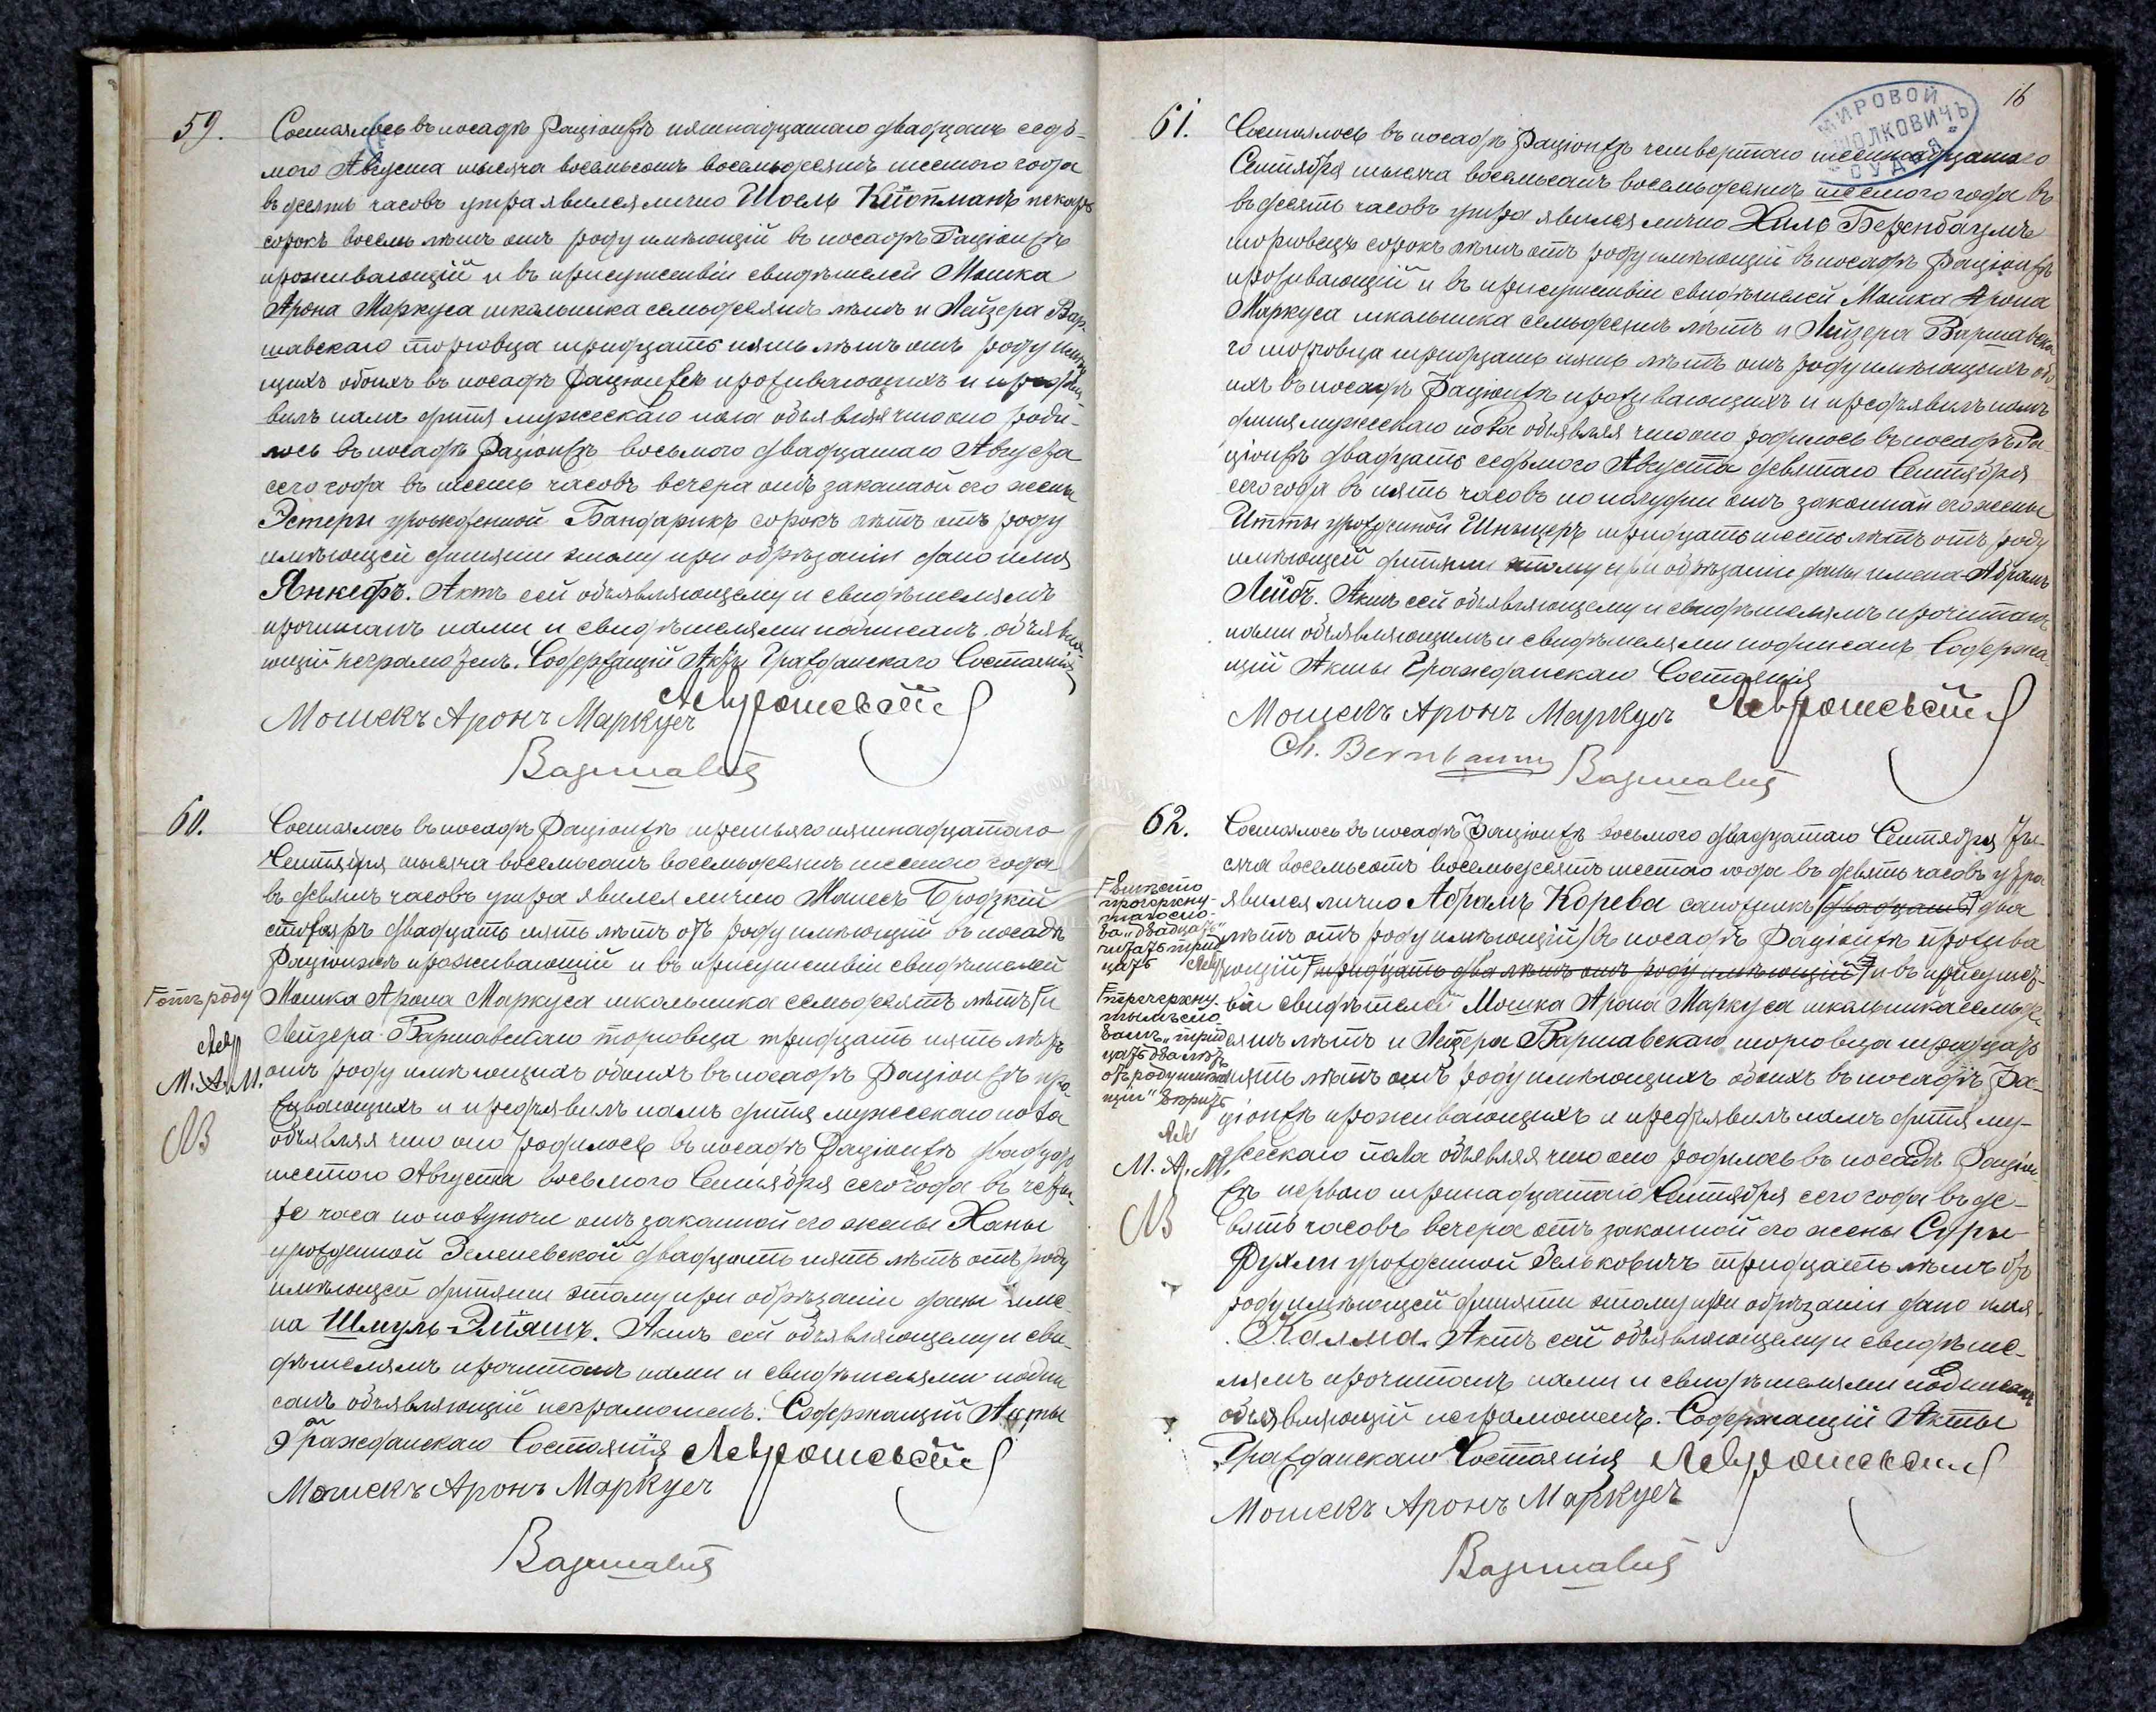 59.
Состоялось въ посадѣ Раціонжѣ пятнадцатаго двадцать седь-
мого Августа тысяча восемьсотъ восемьдесятъ шестого года
въ десять часовъ утра явился лично Шоель пекарь
сорокъ восемь лѣтъ отъ роду имѣющій въ посадѣ Раціонжѣ
проживающій и въ присутствіи свидѣтелей Мошка
Арона Маркуса школьника семьдесятъ лѣтъ и Лейзера Вар-
шавскаго торговца тридцать пять лѣтъ отъ роду имѣю
щихъ обоихъ въ посадѣ Раціонжѣ проживающихъ и предъя-
вилъ намъ дитя мужескаго пола объявляя что оно роди-
лось въ посадѣ Раціонжѣ восьмого двадцатаго Августа
сего года въ шесть часовъ вечера отъ законной его жены
Эстеры урожденной Бандарикъ сорокъ лѣтъ отъ роду
имѣющей дитяти этому при обрѣзаніи дано имя
Янкефъ. Актъ сей объявляющему и свидѣтелямъ
прочитанъ нами и свидѣтелями подписанъ объявля
ющій неграмотенъ. Содержащій Акты Гражданскаго Состоянія
Мошекъ Аронъ Маркусъ
60.
Состоялось въ посадѣ Раціонжѣ третьяго пятнадцатаго
Сентября тысяча восемьсотъ восемьдесятъ шестого года
въ девять часовъ утра явился лично Манесъ Бродзкій
столяръ двадцать пять лѣтъ отъ роду имѣющій въ посадѣ
Раціонжѣ проживающій и въ присутствіи свидѣтелей
отъ роду
Мошка Арона Маркуса школьника семьдесятъ лѣтъ и
Лейзера Варшавскаго торговца тридцать пять лѣтъ
М. А. М.
отъ роду имѣющихъ обоихъ въ посадѣ Раціонжѣ про-
живающихъ и предъявилъ намъ дитя мужескаго пола
объявляя что оно родилось въ посадѣ Раціонжѣ двадцать
шестого Августа восьмого Сентября сего года въ четы-
ре часа по полуночи отъ законной его жены Ханы
урожденной Зелешевской двадцать пять лѣтъ отъ роду
имѣющей дитяти этому при обрѣзаніи даны име-
на Шмуль-Эліашъ. Актъ сей объявляющему и сви-
дѣтелямъ прочитанъ нами и свидѣтелями подпи
санъ объявляющій неграмотенъ. Содержащій Акты
Гражданскаго Состоянія
Мошекъ Аронъ Маркусъ
16
МИРОВОЙ
СУДЬЯ
61.
Состоялось въ посадѣ Раціонжѣ четвертаго шестнадцатаго
Сентября тысяча восемьсотъ восемьдесятъ шестого года въ
въ десять часовъ утра явился лично Хиль Беренбаумъ
торговецъ сорокъ лѣтъ отъ роду имѣющій въ посадѣ Раціонжѣ
проживающій и въ присутствіи свидѣтелей Мошка Арона
Маркуса школьника семьдесятъ лѣтъ и Лейзера Варшавска
го торговца тридцать пять лѣтъ отъ роду имѣющихъ обо-
ихъ въ посадѣ Раціонжѣ проживающихъ и предъявилъ намъ
дитя мужескаго пола объявляя что оно родилось въ посадѣ Ра
ціонжѣ двадцать седьмого Августа девятаго Сентября
сего года въ пять часовъ по полудни отъ законной его жены
Итты урожденной тридцать шесть лѣтъ отъ роду
имѣющей дитяти этому при обрѣзаніи даны имена Абрамъ
Лейбъ. Актъ сей объявляющему и свидѣтелямъ прочитанъ
нами объявляющимъ и свидѣтелями подписанъ Содержа-
щій Акты Гражданскаго Состоянія
Мошекъ Аронъ Маркусъ
Ch. Bernbaum
62.
Состоялось въ посадѣ Раціонжѣ восьмого двадцатаго Сентября ты-
сяча восемьсотъ восемьдесятъ шестого года въ девять часовъ утра
явился лично Абрамъ Корева сапожникъ двадцать два
лѣтъ отъ роду имѣющій въ посадѣ Раціонжѣ прожива
ющій тридцать два лѣтъ отъ роду имѣющій и въ присутст-
віи свидѣтелей Мошка Арона Маркуса школьника семьде
сятъ лѣтъ и Лейзера Варшавскаго торговца тридцать
пять лѣтъ отъ роду имѣющихъ обоихъ въ посадѣ Ра-
ціонжѣ проживающихъ и предъявилъ намъ дитя му-
жескаго пола объявляя что оно родилось въ посадѣ Раціон
жѣ перваго тринадцатаго Сентября сего года въ де-
вять часовъ вечера отъ законной его жены Суры
Рухли урожденной Зельковичъ тридцать лѣтъ отъ
роду имѣющей дитяти этому при обрѣзаніи дано имя
Калма. Актъ сей объявляющему и свидѣте-
лямъ прочитанъ нами и свидѣтелями подписанъ
объявляющій неграмотенъ. Содержащій Акты
Гражданскаго Состоянія
Мошекъ Аронъ Маркусъ
вмѣсто
да „двадцать"
читать трид
цать
перечеркну-
тымъ сло
вамъ „трид
цать два лѣтъ
отъ роду имѣю
щій"
М. А. М.